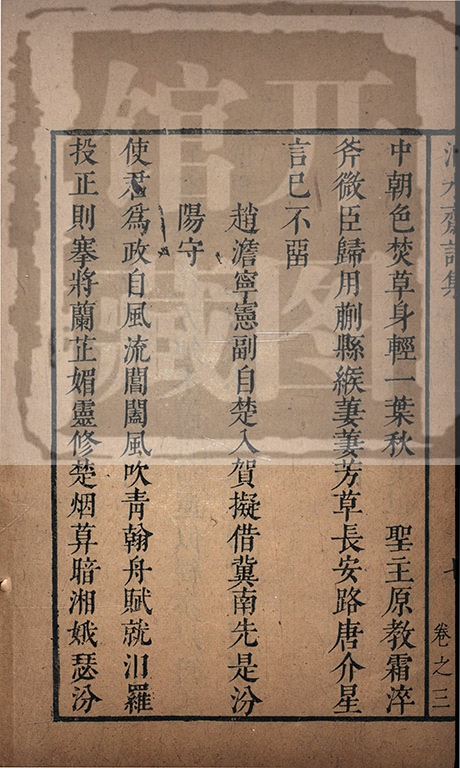 中朝色焚草身輕一葉秋 聖主原教霜淬
斧微臣歸用蒯縣緱萋萋芳草長安路唐介星
言巳不畱
趙澹寧憲副自楚入賀擬借冀南先是汾
陽守
使君為政自風流閶闔風吹青翰舟賦就汨羅
投正則搴將蘭芷媚靈修楚烟算暗湘娥瑟汾
卷之三
开图
馆藏